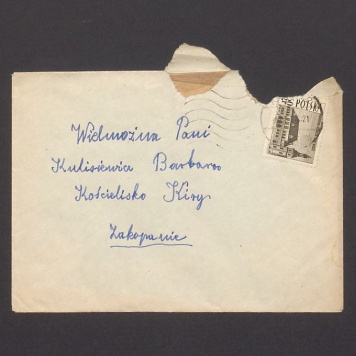 POLSKA
Wielmożna Pani
Kulisiewicz Barbara
Kościelisko Kiry
Zakopane